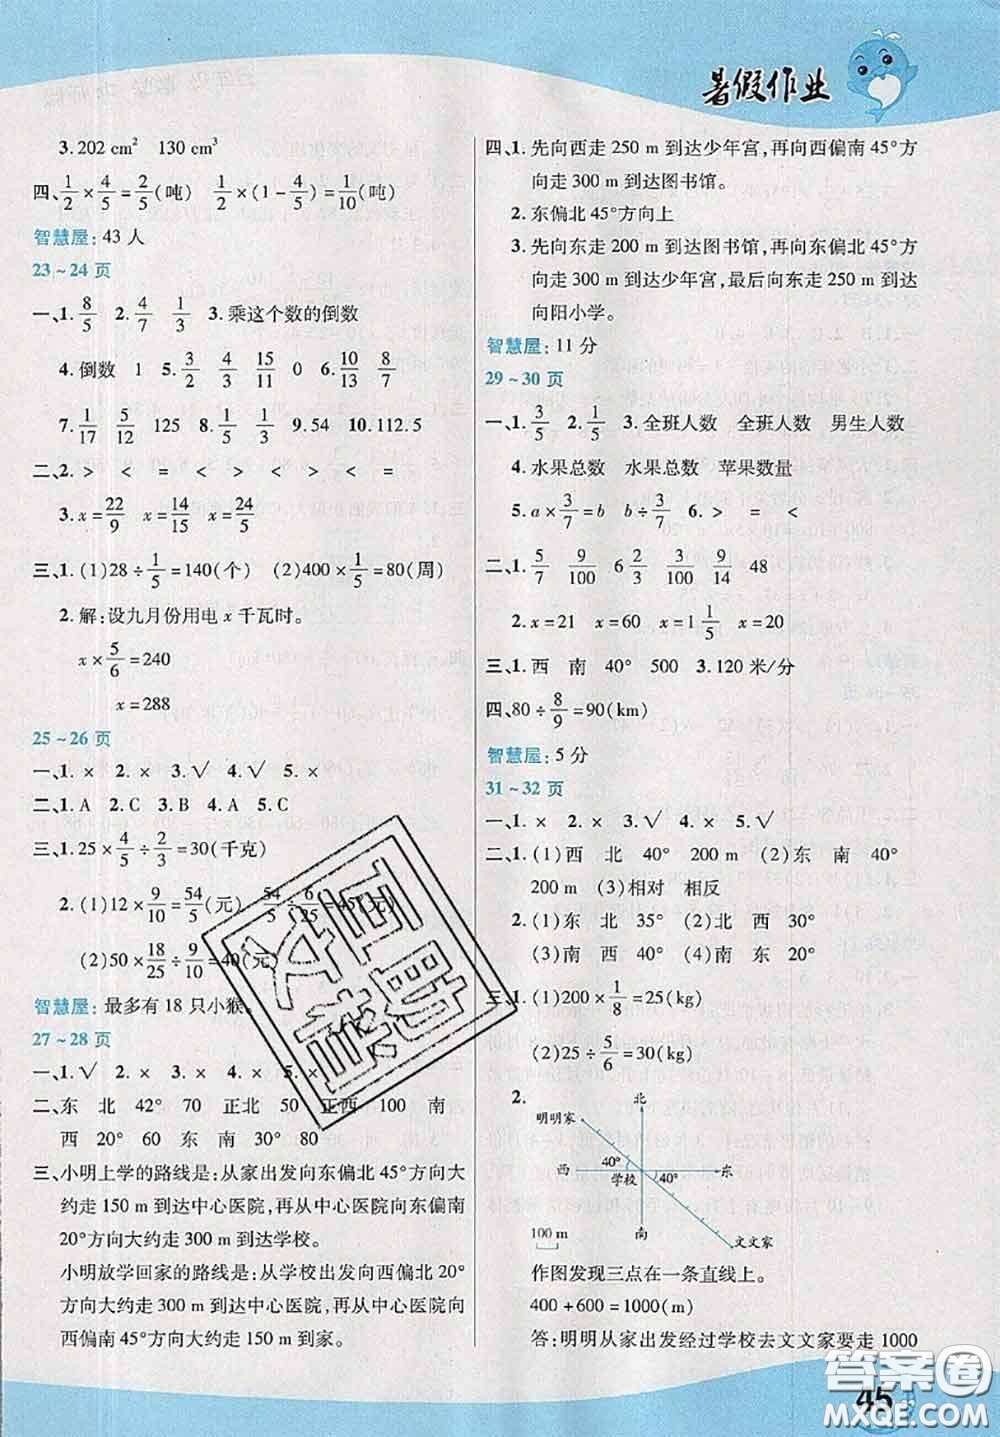 暑假作业
3. 202 cm² 130 cm²
四、1/2×4/5=2/5(吨) 1/2×(1-4/5)=1/10(吨)
智慧屋: 43 人
23~24 页
一、1. 8/5 2. 4/7 1/3 3. 乘这个数的倒数
4. 倒数 1 5. 3/2 4/3 15/11 0 6. 13/10 8/7
7. 1/17 5/12 125 8. 1/5 1/3 9. 54 10. 112.5
二、2. > < = < > > > < =
3. x=22/9 x=14/15 x=24/5
三、1. (1)28÷1/5=140(个) (2)400×1/5=80(周)
2. 解:设九月份用电 x 千瓦时。
x×5/6=240
x=288
25~26 页
一、1. × 2. × 3. √ 4. √ 5. ×
二、1. A 2. C 3. B 4. A 5. C
三、1. 25×4/5÷2/3=30(千克)
2. (1)12×9/10=54/5(元) 54/5÷6/25=45(元)
(2)50×18/25÷9/10=40(元)
智慧屋: 最多有 18 只小猴。
27~28 页
一、1. √ 2. × 3. × 4. √ 5. ×
二、东 北 42° 70 正北 50 正西 100 南
西 20° 60 东 南 30° 80
三、小明上学的路线是:从家出发向东偏北 45°方向大
约走 150 m 到达中心医院,再从中心医院向东偏南
20°方向大约走 300 m 到达学校。
小明放学回家的路线是:从学校出发向西偏北 20°
方向大约走 300 m 到达中心医院,再从中心医院向
西偏南 45°方向大约走 150 m 到家。
四、1. 先向西走 250 m 到达少年宫,再向西偏南 45°方
向走 300 m 到达图书馆。
2. 东偏北 45°方向上
3. 先向东走 200 m 到达图书馆,再向东偏北 45°方向
走 300 m 到达少年宫,最后向东走 250 m 到达
向阳小学。
智慧屋: 11 分
29~30 页
一、1. 3/5 2. 1/5 3. 全班人数 全班人数 男生人数
4. 水果总数 水果总数 苹果数量
5. a×3/7=b b÷3/7 6. > < = =
二、1. 5/7 9/100 6 2/3 3/100 9/14 48
2. x=21 x=60 x=1 1/5 x=20
三、1. 西 南 40° 500 3. 120 米/分
四、80÷8/9=90(km)
智慧屋: 5 分
31~32 页
一、1. × 2. × 3. √ 4. × 5. √
二、1. (1)西 北 40° 200 m (2)东 南 40°
200 m (3)相对 相反
2. (1)东 北 35° (2)北 西 30°
(3)南 西 40° (4)南 东 20°
三、1. (1)200×1/8=25(kg)
(2)25÷5/6=30(kg)
2.
北
明明家
西
40°
学校
40°
东
100 m
南
文文家
作图发现三点在一条直线上。
400+600=1000(m)
答:明明从家出发经过学校去文文家要走 1000
45
答案圈
MXQE.COM